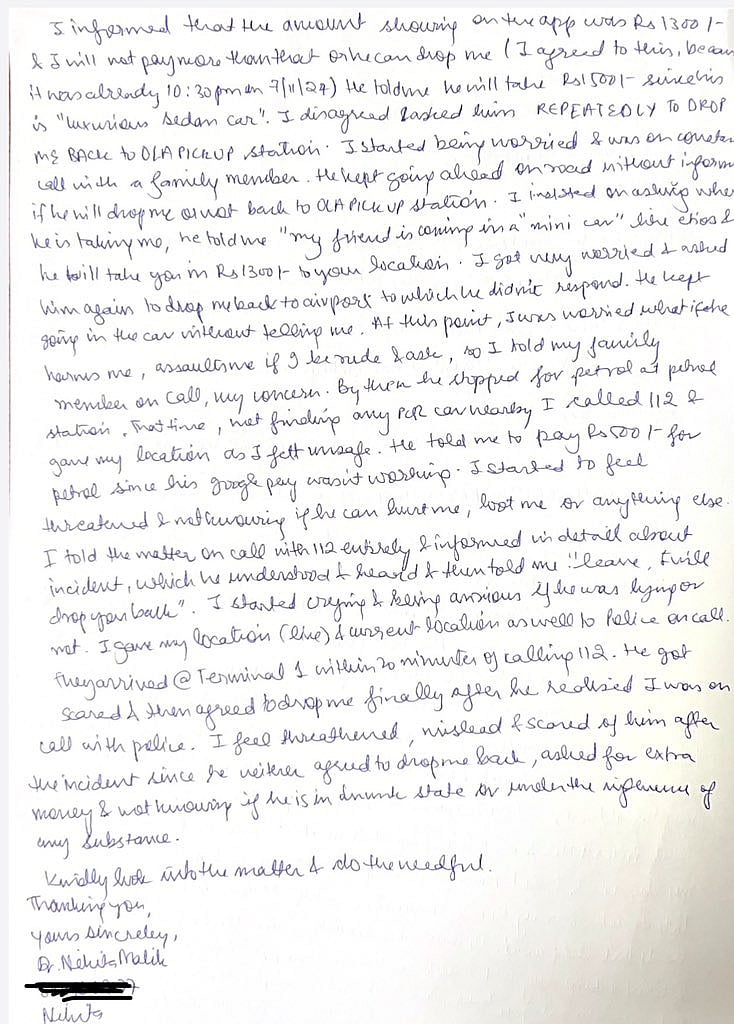 I informed that the amount showing on the app was Rs 1300/-
& I will not pay more than that or he can drop me (I agreed to this, becau
it was already 10:30pm on 7/11/24) He told me he will take Rs1500/- since his
is "luxurious sedan car". I disagreed & asked him REPEATEDLY TO DROP
ME BACK to OLA PICKUP station. I started being worried & was on constan
call with a family member. He kept going ahead on road without inform
if he will drop me or not back to OLA PICK UP station. I insisted on asking whe
he is taking me, he told me "my friend is coming in a "mini car" like etios &
he will take you in Rs1300/- to your location. I got very worried & asked
him again to drop me back to airport to which he didn't respond. He kept
going in the car without telling me. At this point, I was worried what if he
harms me, assaults me if I be rude & ask, so I told my family
member on call, my concern. By then he stopped for petrol at petrol
station. That time, not finding any PCR car nearby I called 112 &
gave my location as I felt unsafe. He told me to pay Rs 500/- for
petrol since his google pay wasn't working. I started to feel
threatened & not knowing if he can hurt me, loot me or anything else.
I told the matter on call with 112 entirely & informed in detail about
incident, which he understood & heard & then told me "leave, I will
drop you back". I started crying & being anxious if he was lying or
not. I gave my location (live) & current location as well to Police on call.
They arrived @ Terminal 1 within 20 minutes of calling 112. He got
scared & then agreed to drop me finally after he realised I was on
call with police. I feel threathened, mislead & scared of him after
the incident since he neither agreed to drop me back, asked for extra
money & not knowing if he is in drunk state or under the influence of
any substance.
Kindly look into the matter & do the needful.
Thanking you,
Yours Sincreley,
Dr. Nehita Malik
Nehita